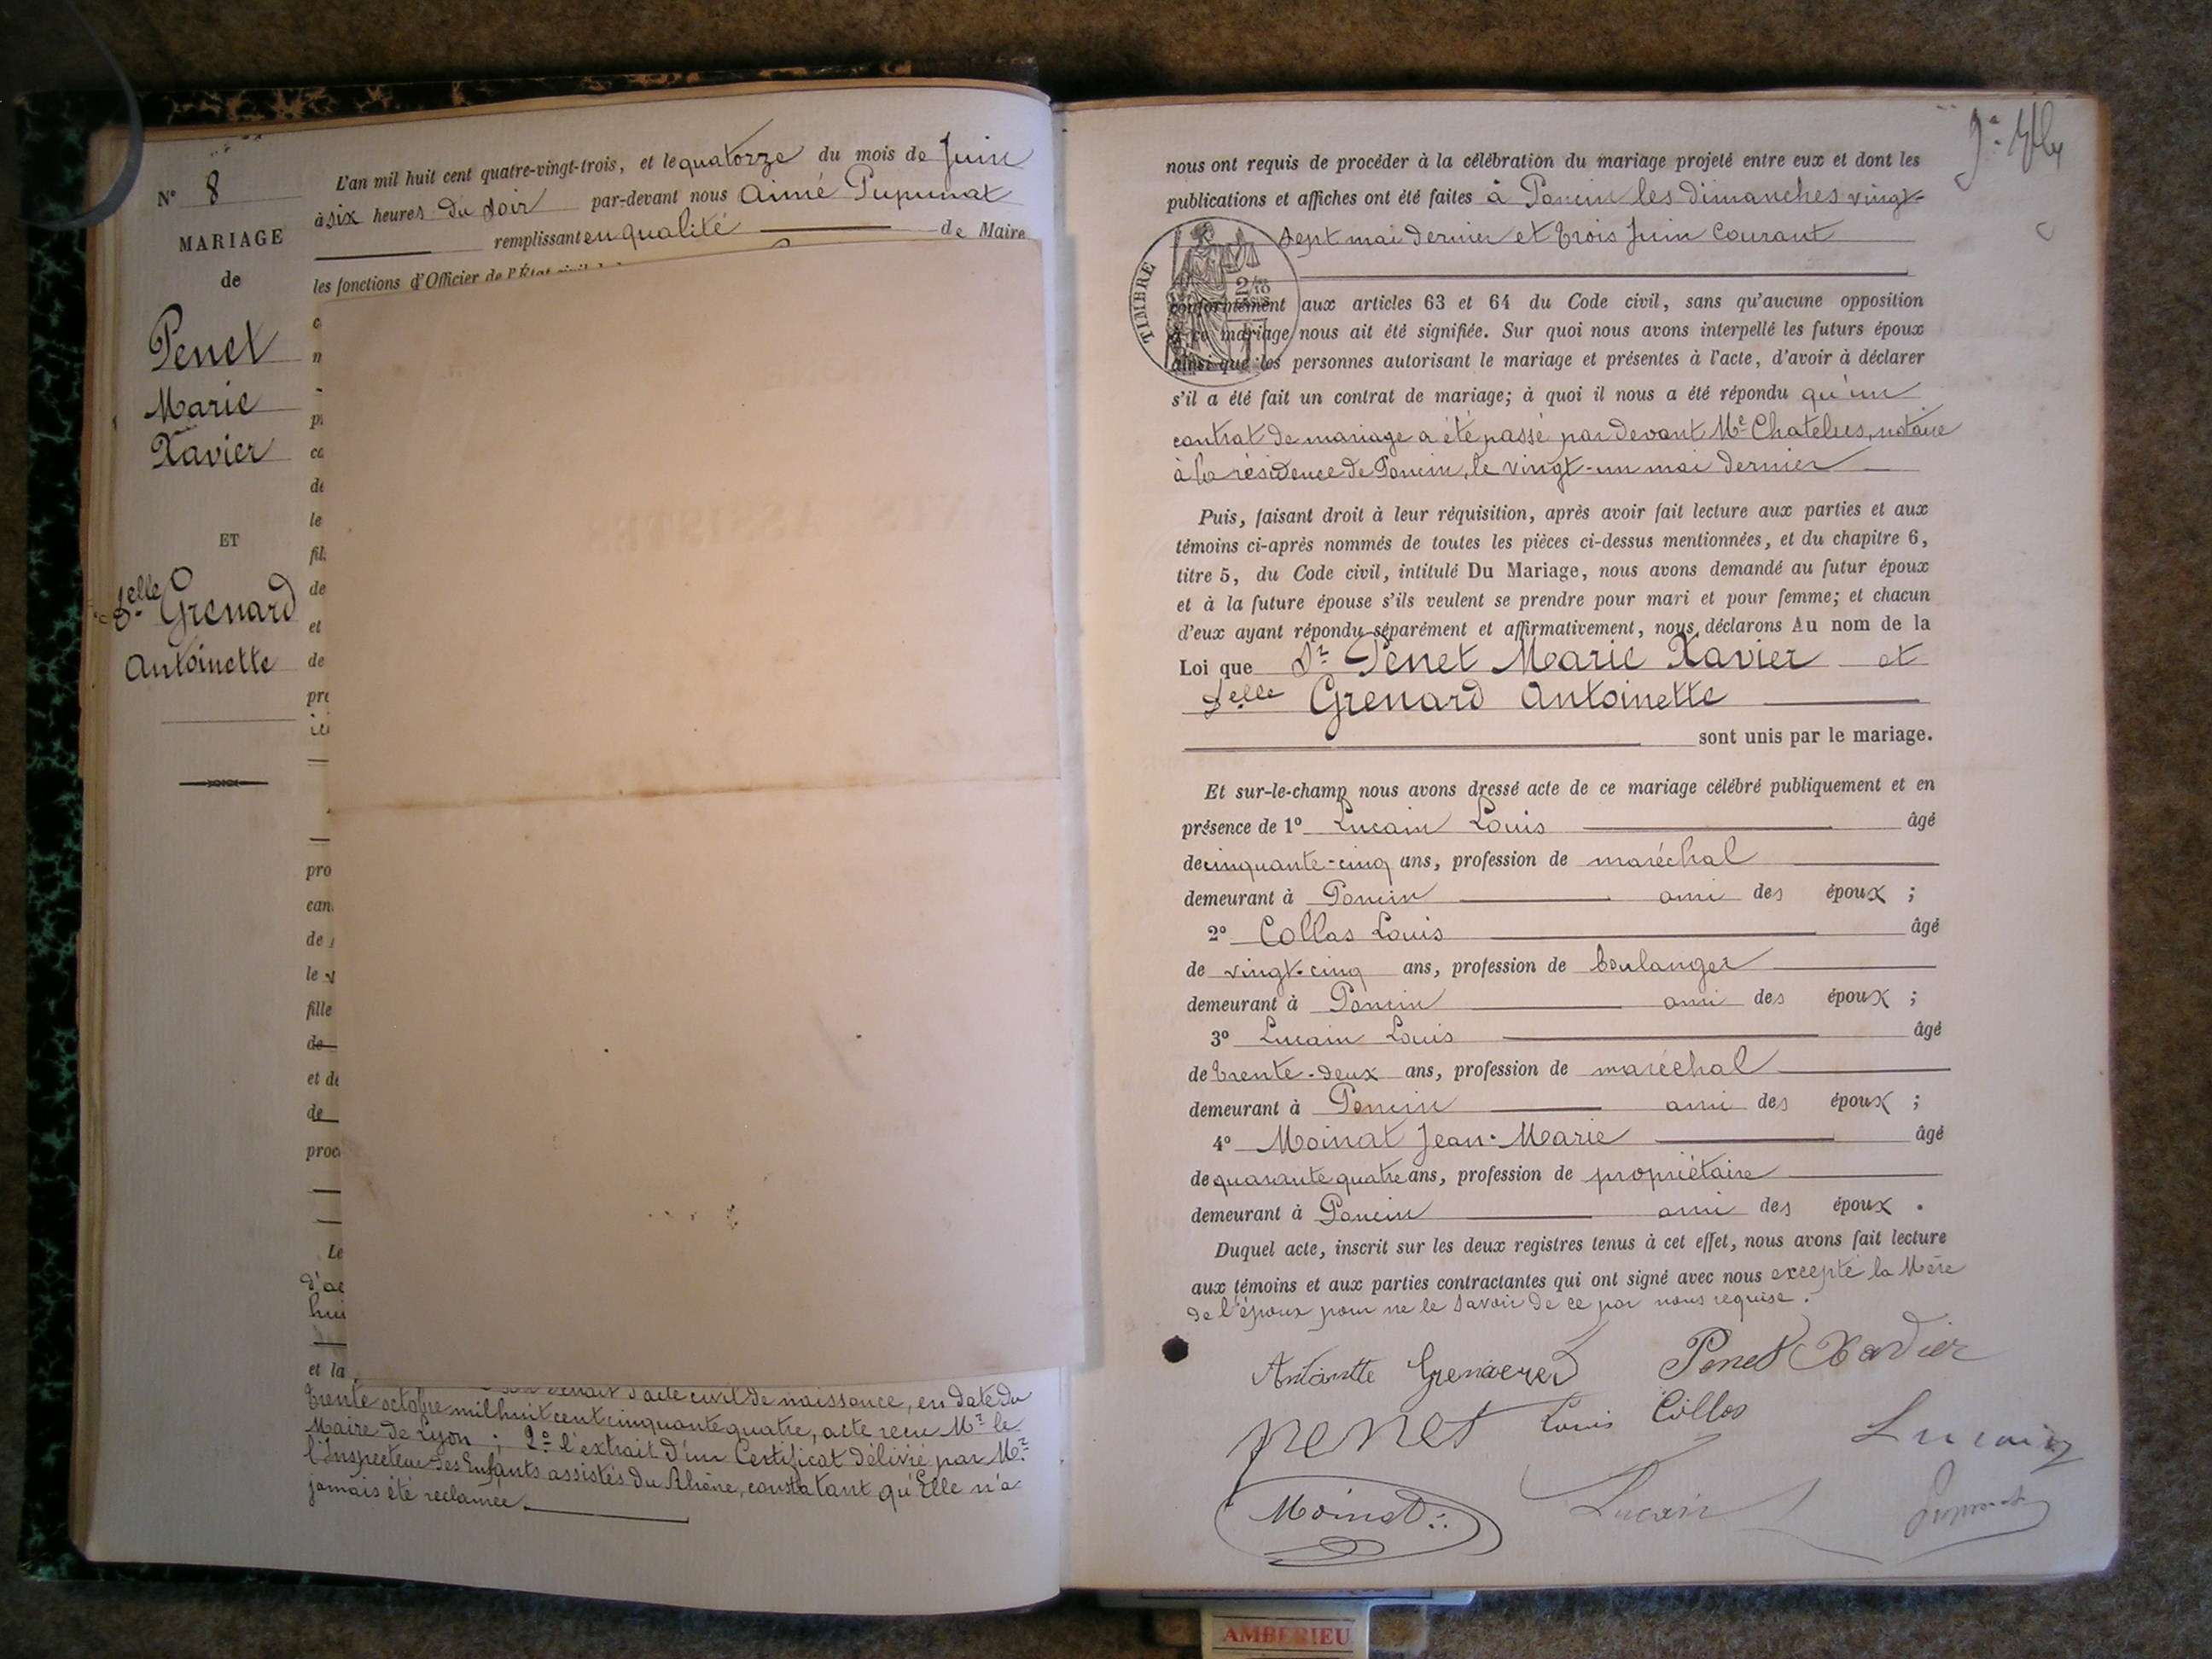 N° 8
MARIAGE
de
Penet
Marie
Xavier
ET
Delle Grenard
Antoinette
L'an mil huit cent quatre-vingt-trois, et le quatorze du mois de Juin
à six heures du soir par-devant nous Aimé Pupunat
remplissant en qualité de Maire
les fonctions d'Officier de l'État civil
et la
trente octobre mil huit cent cinquante quatre, acte reçu Mr le
Maire de Lyon ; 2° l'extrait d'un Certificat délivré par Mr
l'Inspecteur des Enfants assistés du Rhône, constatant qu'Elle n'a
jamais été réclamée.
nous ont requis de procéder à la célébration du mariage projeté entre eux et dont les
publications et affiches ont été faites à Poncin les dimanches vingt-
sept mai dernier et trois Juin Courant
TIMBRE
conformément aux articles 63 et 64 du Code civil, sans qu'aucune opposition
à ce mariage nous ait été signifiée. Sur quoi nous avons interpellé les futurs époux
ainsi que les personnes autorisant le mariage et présentes à l'acte, d'avoir à déclarer
s'il a été fait un contrat de mariage; à quoi il nous a été répondu qu'un
contrat de mariage a été passé par devant Me Chatelus, notaire
à la résidence de Poncin, le vingt-un mai dernier
Puis, faisant droit à leur réquisition, après avoir fait lecture aux parties et aux
témoins ci-après nommés de toutes les pièces ci-dessus mentionnées, et du chapitre 6,
titre 5, du Code civil, intitulé Du Mariage, nous avons demandé au futur époux
et à la future épouse s'ils veulent se prendre pour mari et pour femme; et chacun
d'eux ayant répondu séparément et affirmativement, nous déclarons Au nom de la
Loi que Sr Penet Marie Xavier et
Delle Grenard Antoinette
sont unis par le mariage.
Et sur-le-champ nous avons dressé acte de ce mariage célébré publiquement et en
présence de 1° Lucain Louis âgé
de cinquante-cinq ans, profession de maréchal
demeurant à Poncin ami des époux ;
2° Collas Louis âgé
de vingt-cinq ans, profession de boulanger
demeurant à Poncin ami des époux ;
3° Lucain Louis âgé
de trente-deux ans, profession de maréchal
demeurant à Poncin ami des époux ;
4° Moinat Jean-Marie âgé
de quarante quatre ans, profession de propriétaire
demeurant à Poncin ami des époux .
Duquel acte, inscrit sur les deux registres tenus à cet effet, nous avons fait lecture
aux témoins et aux parties contractantes qui ont signé avec nous excepté la Mère
de l'époux pour ne le savoir de ce par nous requise.
Penet Xavier
penet Louis Collos Lucain
Moinat Lucain Pupunat
AMBERIEU